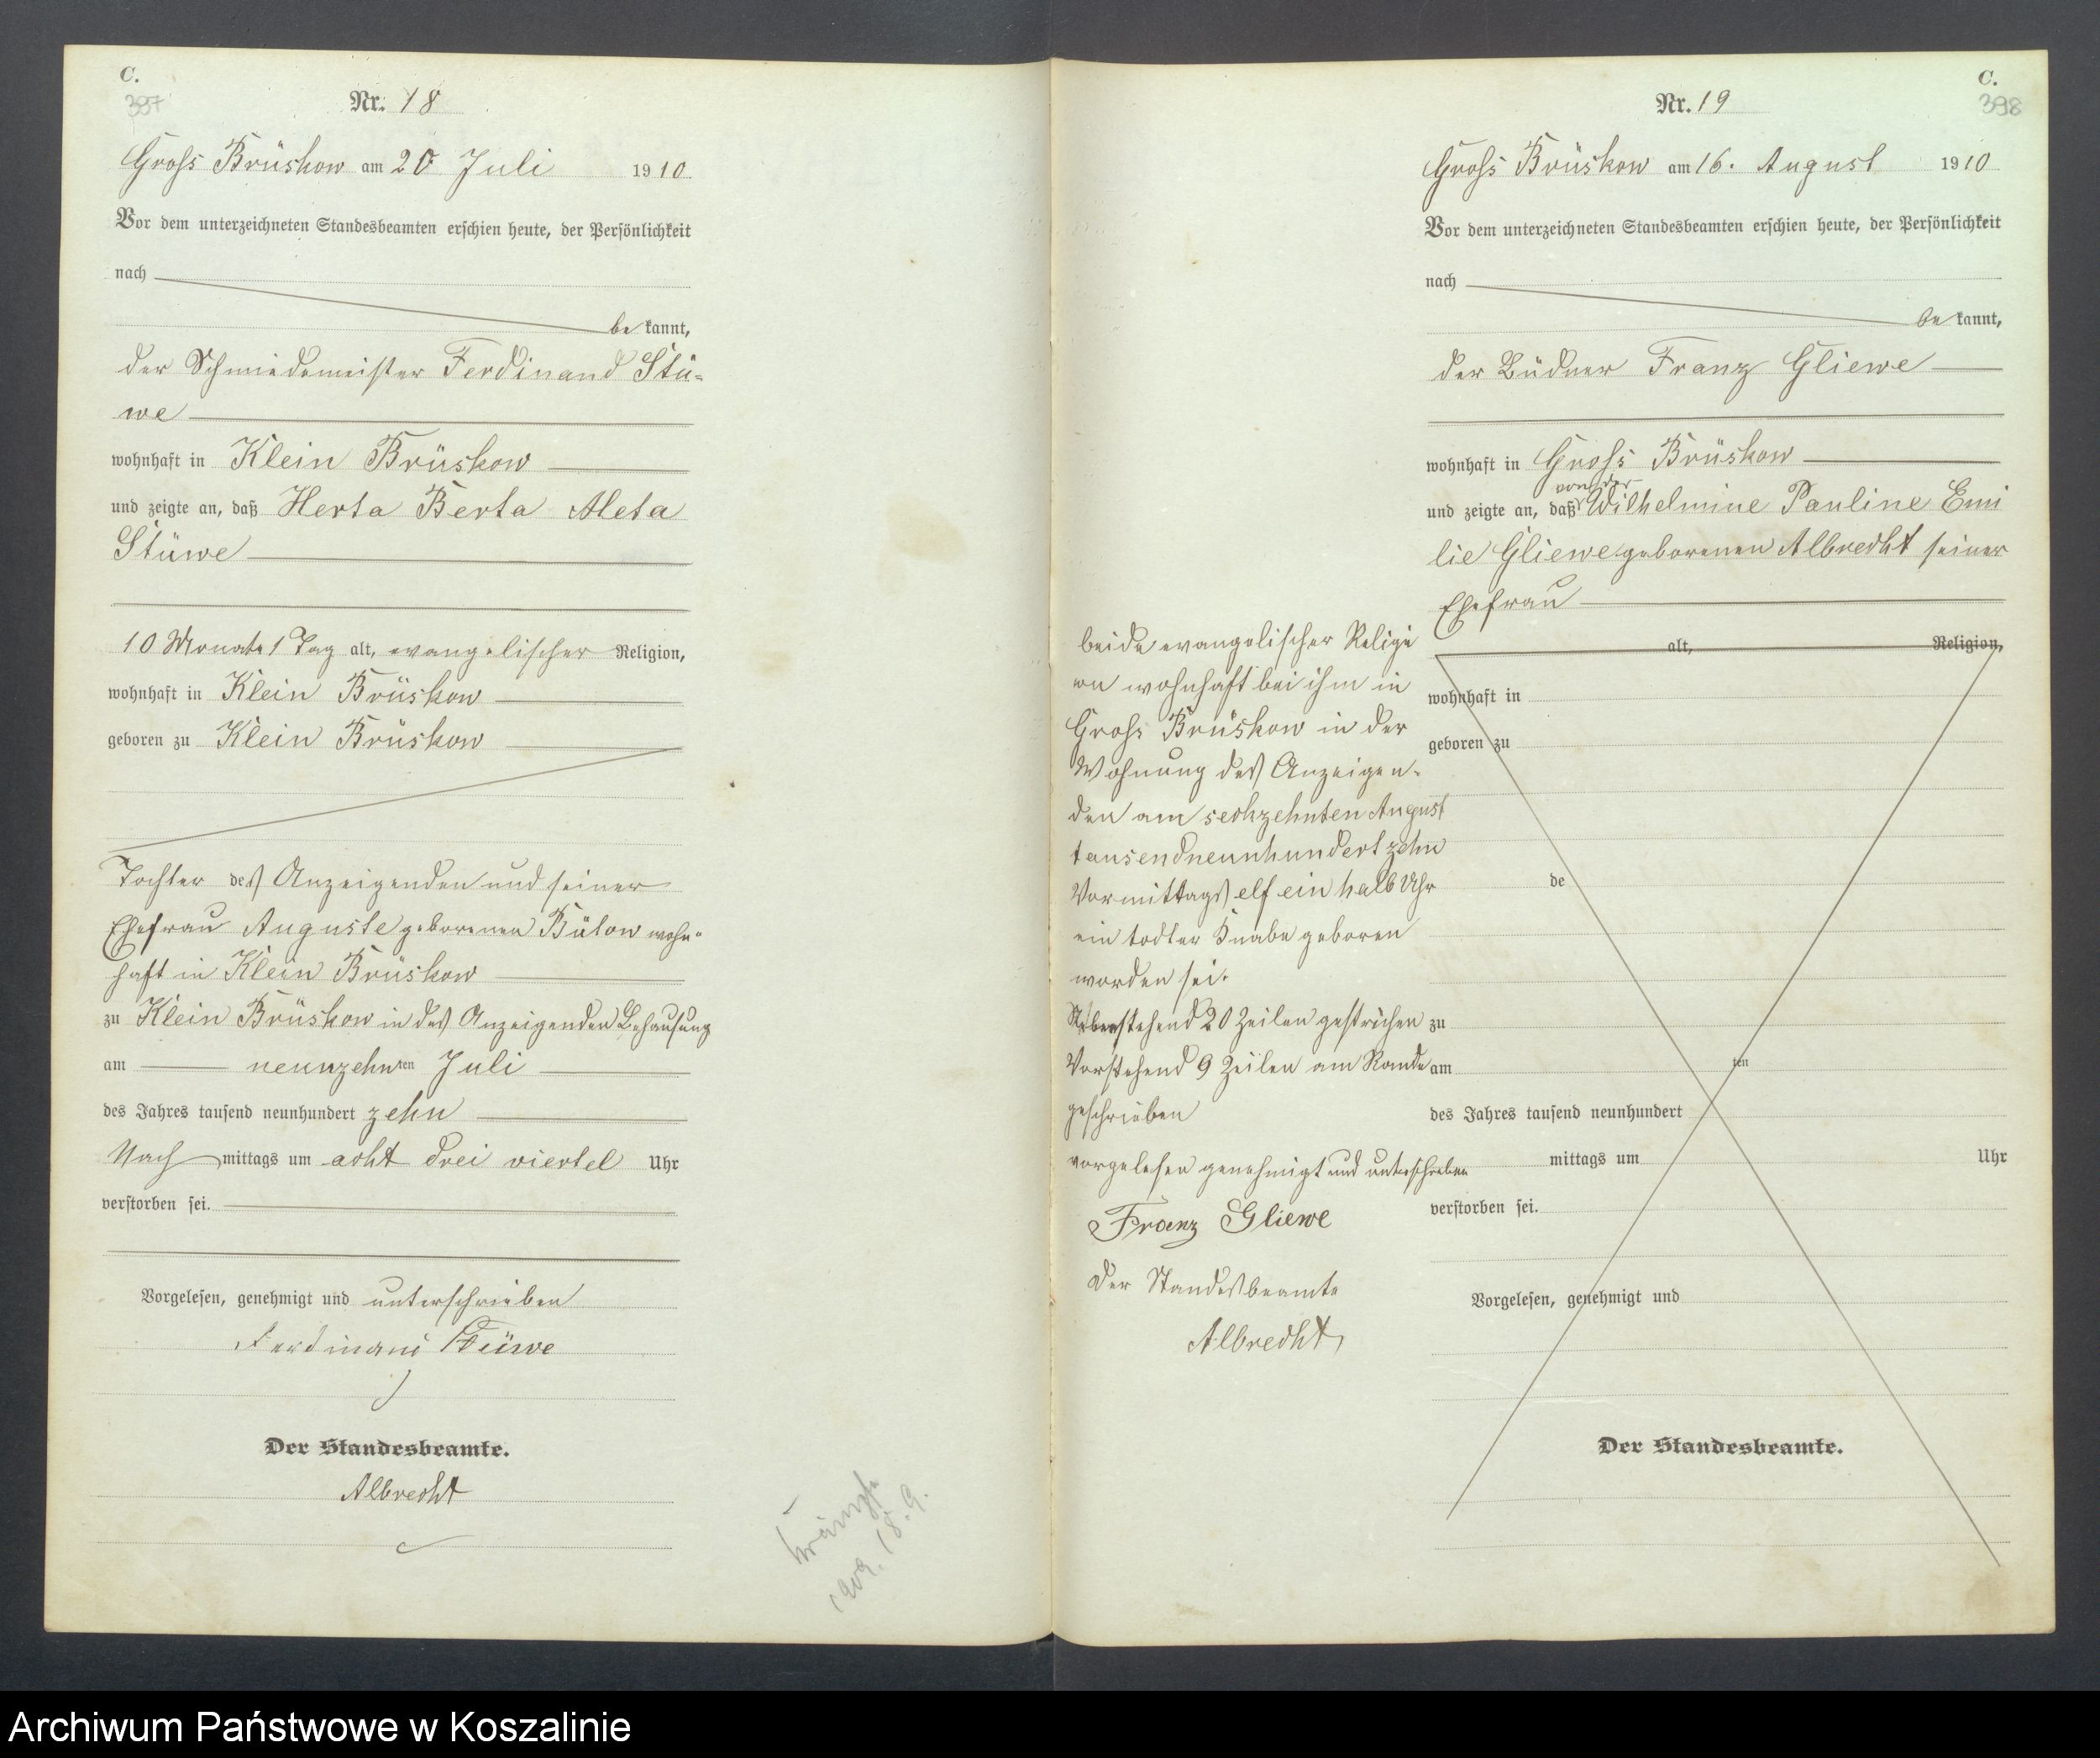 C.
397
Nr. 18
Gross Brüskow am 20 Juli 1910
Vor dem unterzeichneten Standesbeamten erschien heute, der Persönlichkeit
nach
bekannt,
der Schmiedemeister Ferdinand Stü-
we
wohnhaft in Klein Brüskow
und zeigte an, daß Herta Berta Meta
Stüwe
10 Monate 1 Tag alt, evangelischer Religion,
wohnhaft in Klein Brüskow
geboren zu Klein Brüskow
Tochter des Anzeigenden und seiner
Ehefrau Auguste geborenen Bülow wohn-
haft in Klein Brüskow
zu Klein Brüskow in des Anzeigenden Behausung
am neunzehnten Juli
des Jahres tausend neunhundert zehn
Nachmittags um acht drei viertel Uhr
verstorben sei.
Vorgelesen, genehmigt und unterschrieben
Ferdinand Stüwe
Der Standesbeamte.
Albrecht
18.9.
C.
398
Nr. 19
Gross Brüskow am 16. August 1910
Vor dem unterzeichneten Standesbeamten erschien heute, der Persönlichkeit
nach
bekannt,
der Büdner Franz Gliewe
wohnhaft in Gross Brüskow
von der
und zeigte an, daß Wilhelmine Pauline Emi
lie Gliewe geborenen Albrecht seiner
Ehefrau
alt, Religion,
wohnhaft in
geboren zu
de
zu
am ten
des Jahres tausend neunhundert
mittags um Uhr
verstorben sei.
Vorgelesen, genehmigt und
Der Standesbeamte.
beide evangelischer Religi
on wohnhaft bei ihm in
Gross Brüskow in der
Wohnung des Anzeigen-
den am sechzehnten August
tausendneunhundertzehn
Vormittags elf ein halb Uhr
ein todter Knabe geboren
worden sei.
Nebenstehend 20 Zeilen gestrichen
Vorstehend 9 Zeilen am Rande
geschrieben
vorgelesen genehmigt und unterschrieben
Franz Gliewe
Der Standesbeamte
Albrecht
Archiwum Państwowe w Koszalinie